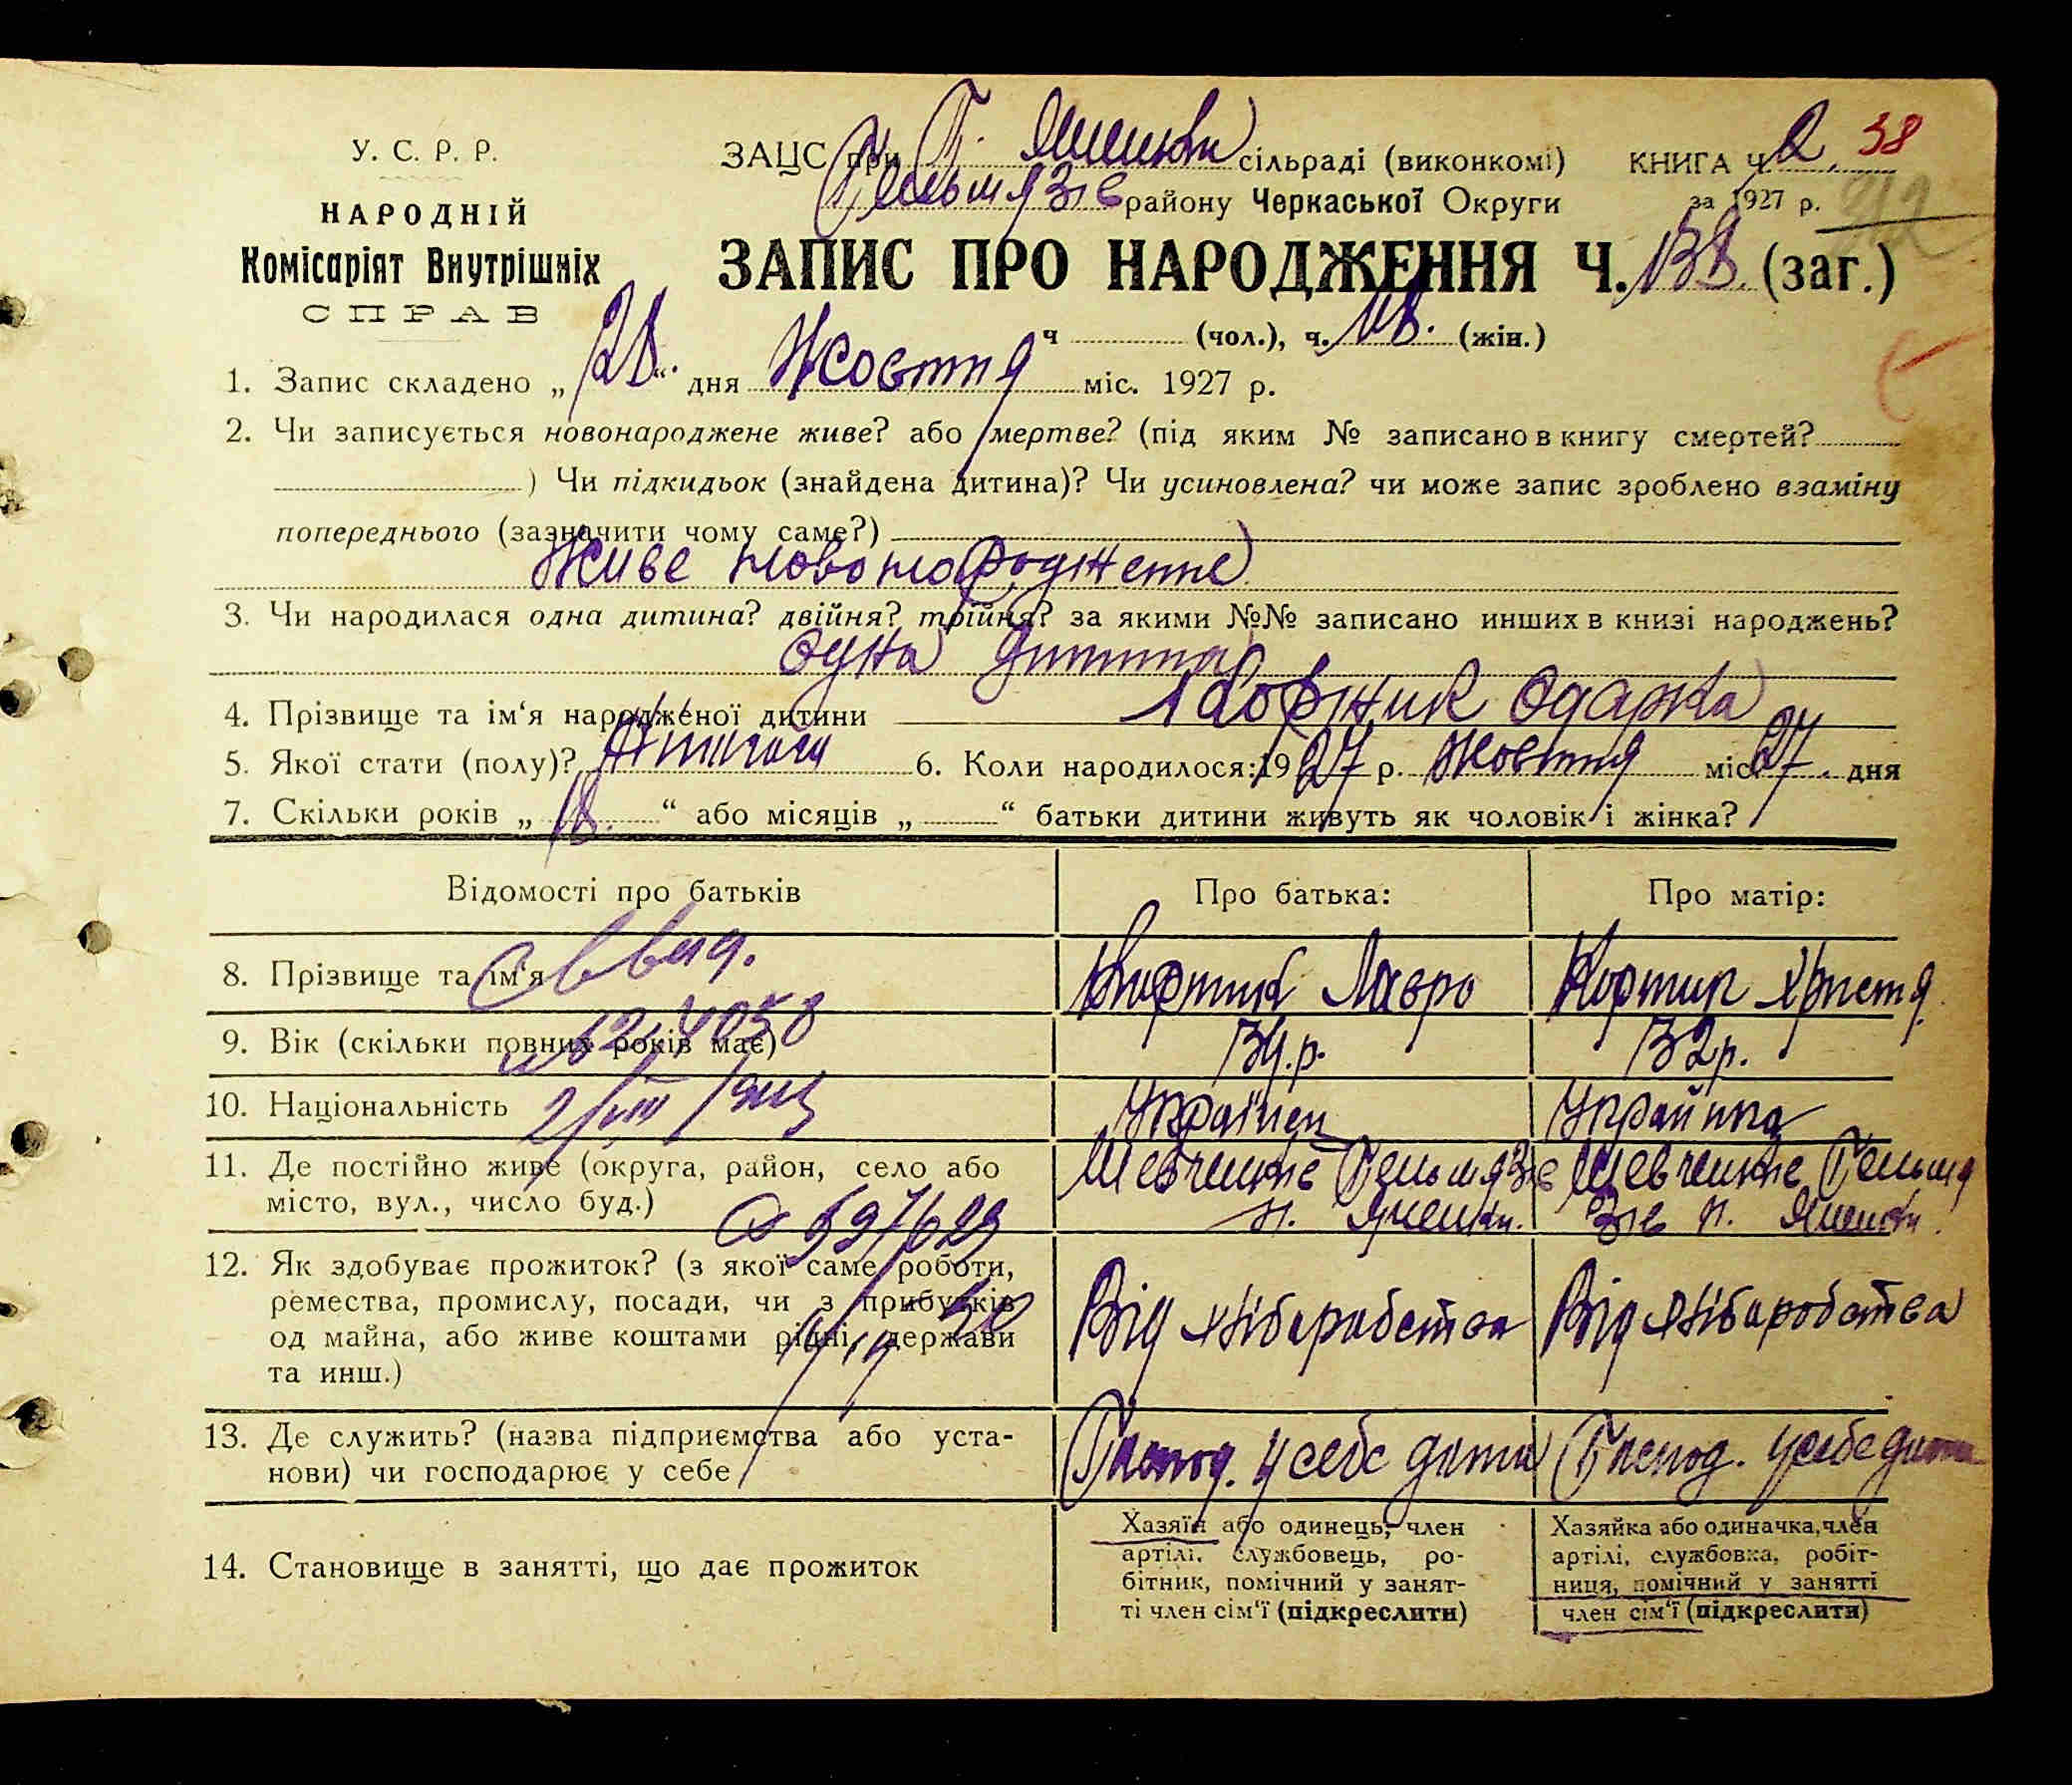 У. С. Р. Р.
НАРОДНІЙ
Комісаріят Внутрішніх
СПРАВ
ЗАЦС при с. Яшники сільраді (виконкомі) КНИГА Ч. 2. 38
Гельмязів району Черкаської Округи за 1927 р. 212
ЗАПИС ПРО НАРОДЖЕННЯ Ч. 138. (заг.)
ч (чол.), ч. (жін.)
1. Запис складено „28“ дня Жовтня міс. 1927 р.
2. Чи записується новонароджене живе? або мертве? (під яким № записано в книгу смертей?
) Чи підкидьок (знайдена дитина)? Чи усиновлена? чи може запис зроблено взаміну
попереднього (зазначити чому саме?)
Живе новонародженне
3. Чи народилася одна дитина? двійня? трійня? за якими №№ записано инших в книзі народжень?
одна дитина
4. Прізвище та ім‘я народженої дитини Одарка
5. Якої стати (полу)? Жиночи 6. Коли народилося: 1927 р. Жовтня міс. 27. дня
7. Скільки років „ “ або місяців „ “ батьки дитини живуть як чоловік і жінка?
Відомості про батьків Про батька: Про матір:
8. Прізвище та ім‘я Лавро Христя
9. Вік (скільки повних років має) 34.р. 32р.
10. Національність Українец Українка
11. Де постійно живе (округа, район, село або Шевченків Гельмязів Шевченків Гельмя
місто, вул., число буд.) с. Яшники. зів с. Яшники.
12. Як здобуває прожиток? (з якої саме роботи,
ремества, промислу, посади, чи з прибутків Від хлібаробства Від хлібаробства
од майна, або живе коштами рідні, держави
та инш.)
13. Де служить? (назва підприємства або уста-
нови) чи господарює у себе Господ. у себе дома Господ. у себе дома
14. Становище в занятті, що дає прожиток
Хазяїн або одинець, член
артілі, службовець, ро-
бітник, помічний у занят-
ті член сім‘ї (підкреслити)
Хазяйка або одиначка, член
артілі, службовка, робіт-
ниця, помічний у занятті
член сім‘ї (підкреслити)